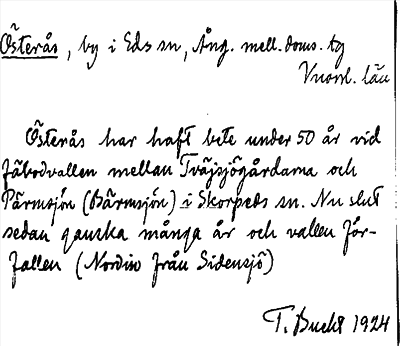 Österås, by i Eds sn, Ång. mell. doms. tg
Vnorl. län
Österås har haft bete under 50 år vid
fäbodvallen mellan Träsjsjögårdarna och
Pärmsjön (Bärmsjön) i Skorpeds sn. Nu slut
sedan ganska många år och vallen för-
fallen (Nordin från Sidensjö)
T. Bucht 1924